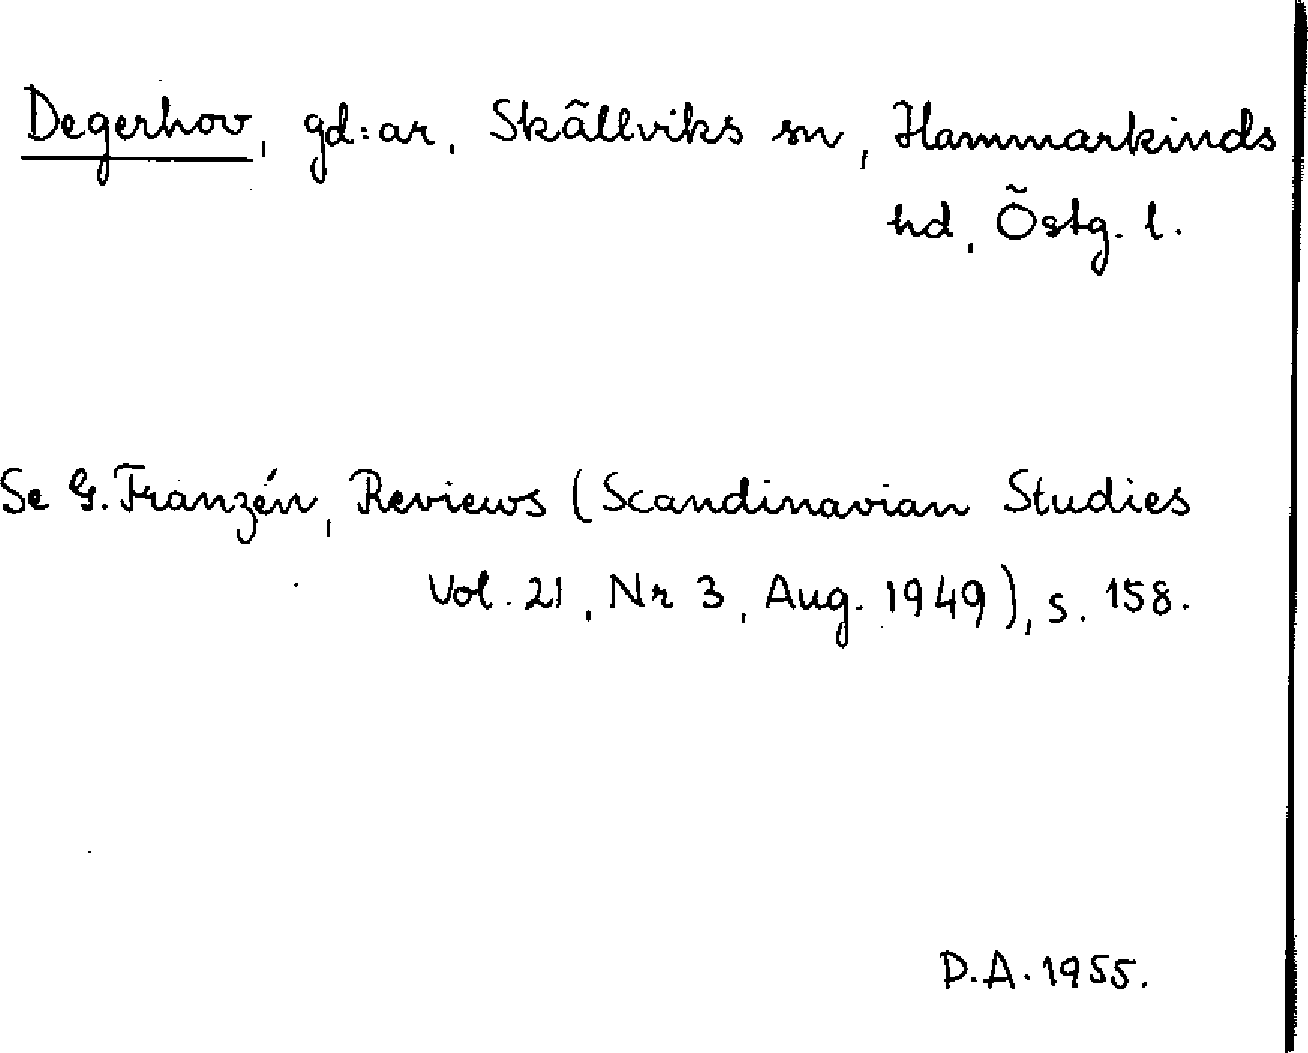 Degerhov, gd:ar, Skällviks sn, Hammarkinds
hd, Östg. l.
Se G. Franzén, Reviews (Scandinavian Studies
Vol. 21, Nr 3, Aug. 1949), s. 158.
D.A. 1955.